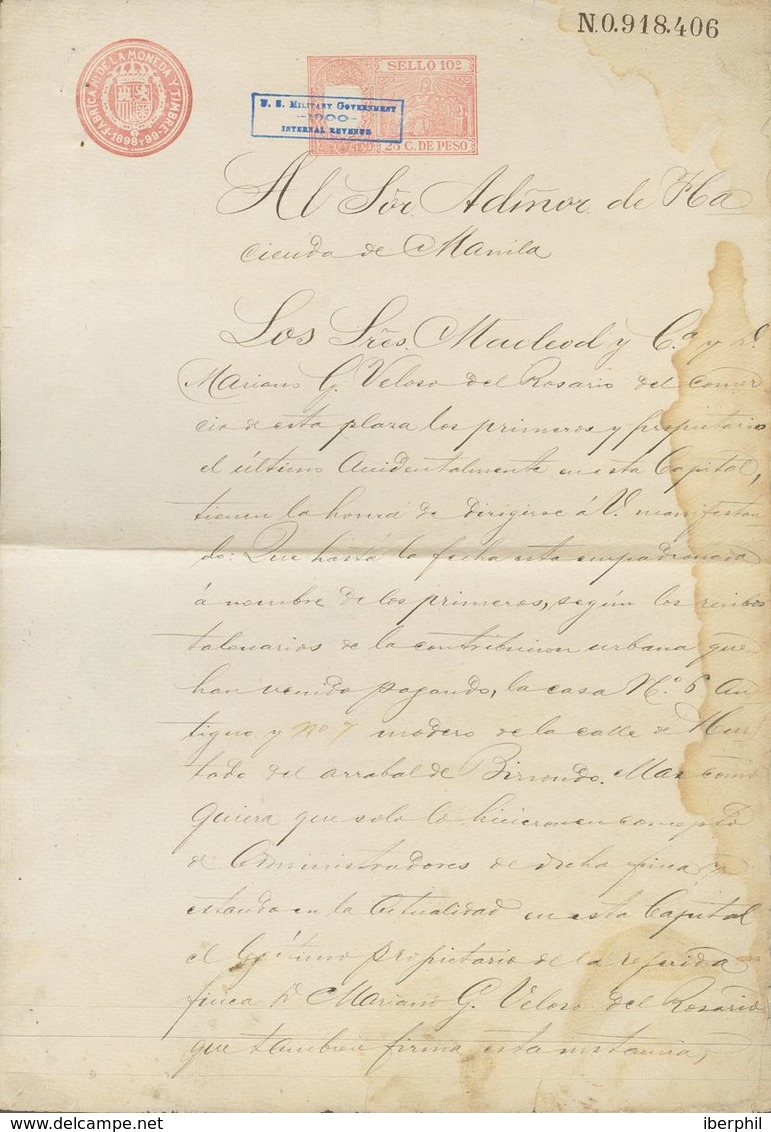 N.0.918.406
FABRICA Nal. DE LA MONEDA Y TIMBRE
1898 Y 99
SELLO 10º
25 C. DE PESO
U. S. MILITARY GOVERNMENT
-1900-
INTERNAL REVENUE
Al Sór. Admor. de Ha
cienda de Manila
Los Sres. Macleod y Ca. y D.
Mariano G. Veloso del Rosario del comer
cio de esta plaza los primeros y propietario
el último accidentalmente en esta Capital,
tienen la honra de dirigirse á V. manifestan
do: Que hasta la fecha esta empadronada
á nombre de los primeros, según los recibos
talonarios de la contribucion urbana que
han venido pagando, la casa No. 6 an
tiguo y no 7 modero de la calle de Hur
tado del arrabal de Binondo. Mas como
quiera que solo lo hicieron en concepto
de Administradores de dicha finca y
estando en la actualidad en esta Capital
el legítimo propietario de la referida
finca D. Mariano G. Veloso del Rosario
que tambien firma esta instancia,
delcampe.net
iberphil